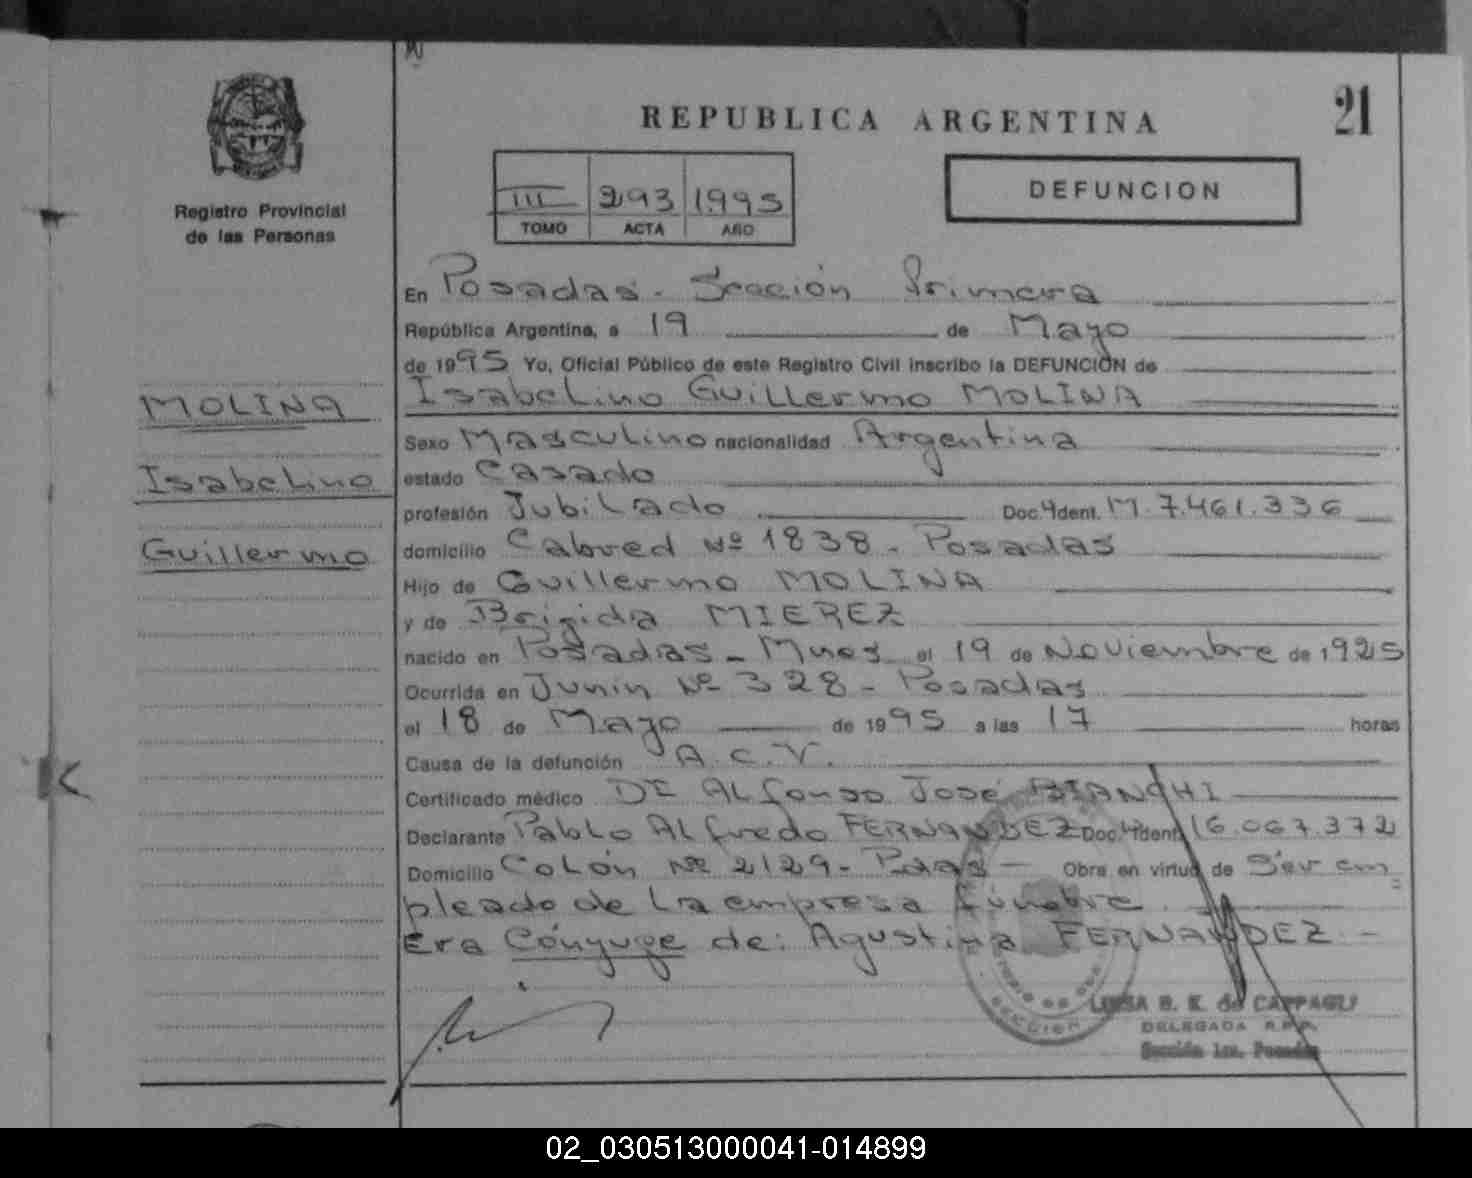 21
REPUBLICA ARGENTINA
DEFUNCION
III 293 1995
TOMO ACTA AÑO
Registro Provincial
de las Personas
MOLINA
Isabelino
Guillermo
En Posadas - Sección Primera
República Argentina, a 19 de Mayo
de 1995 Yo, Oficial Público de este Registro Civil inscribo la DEFUNCIÓN de
Isabelino Guillermo MOLINA
Sexo Masculino nacionalidad Argentina
estado Casado
profesión Jubilado Doc. Ident. M. 7.461.336
domicilio Cabred Nº 1838 - Posadas
Hijo de Guillermo MOLINA
y de Brigida MIEREZ
nacido en Posadas - Mnes el 19 de Noviembre de 1925
Ocurrida en Junín Nº 328 - Posadas
el 18 de Mayo de 1995 a las 17 horas
Causa de la defunción A.C.V.
Certificado médico DE Alfonso José BIANCHI
Declarante Pablo Alfredo FERNANDEZ Doc. Ident. 16.067.372
Domicilio Colón Nº 2129 - Pdas - Obra en virtud de Ser em
pleado de la empresa fúnebre
Era Cónyuge de: Agustina FERNANDEZ -
DELEGADA R.P.P.
Sección 1ra. Posadas
SECCION
02_030513000041-014899